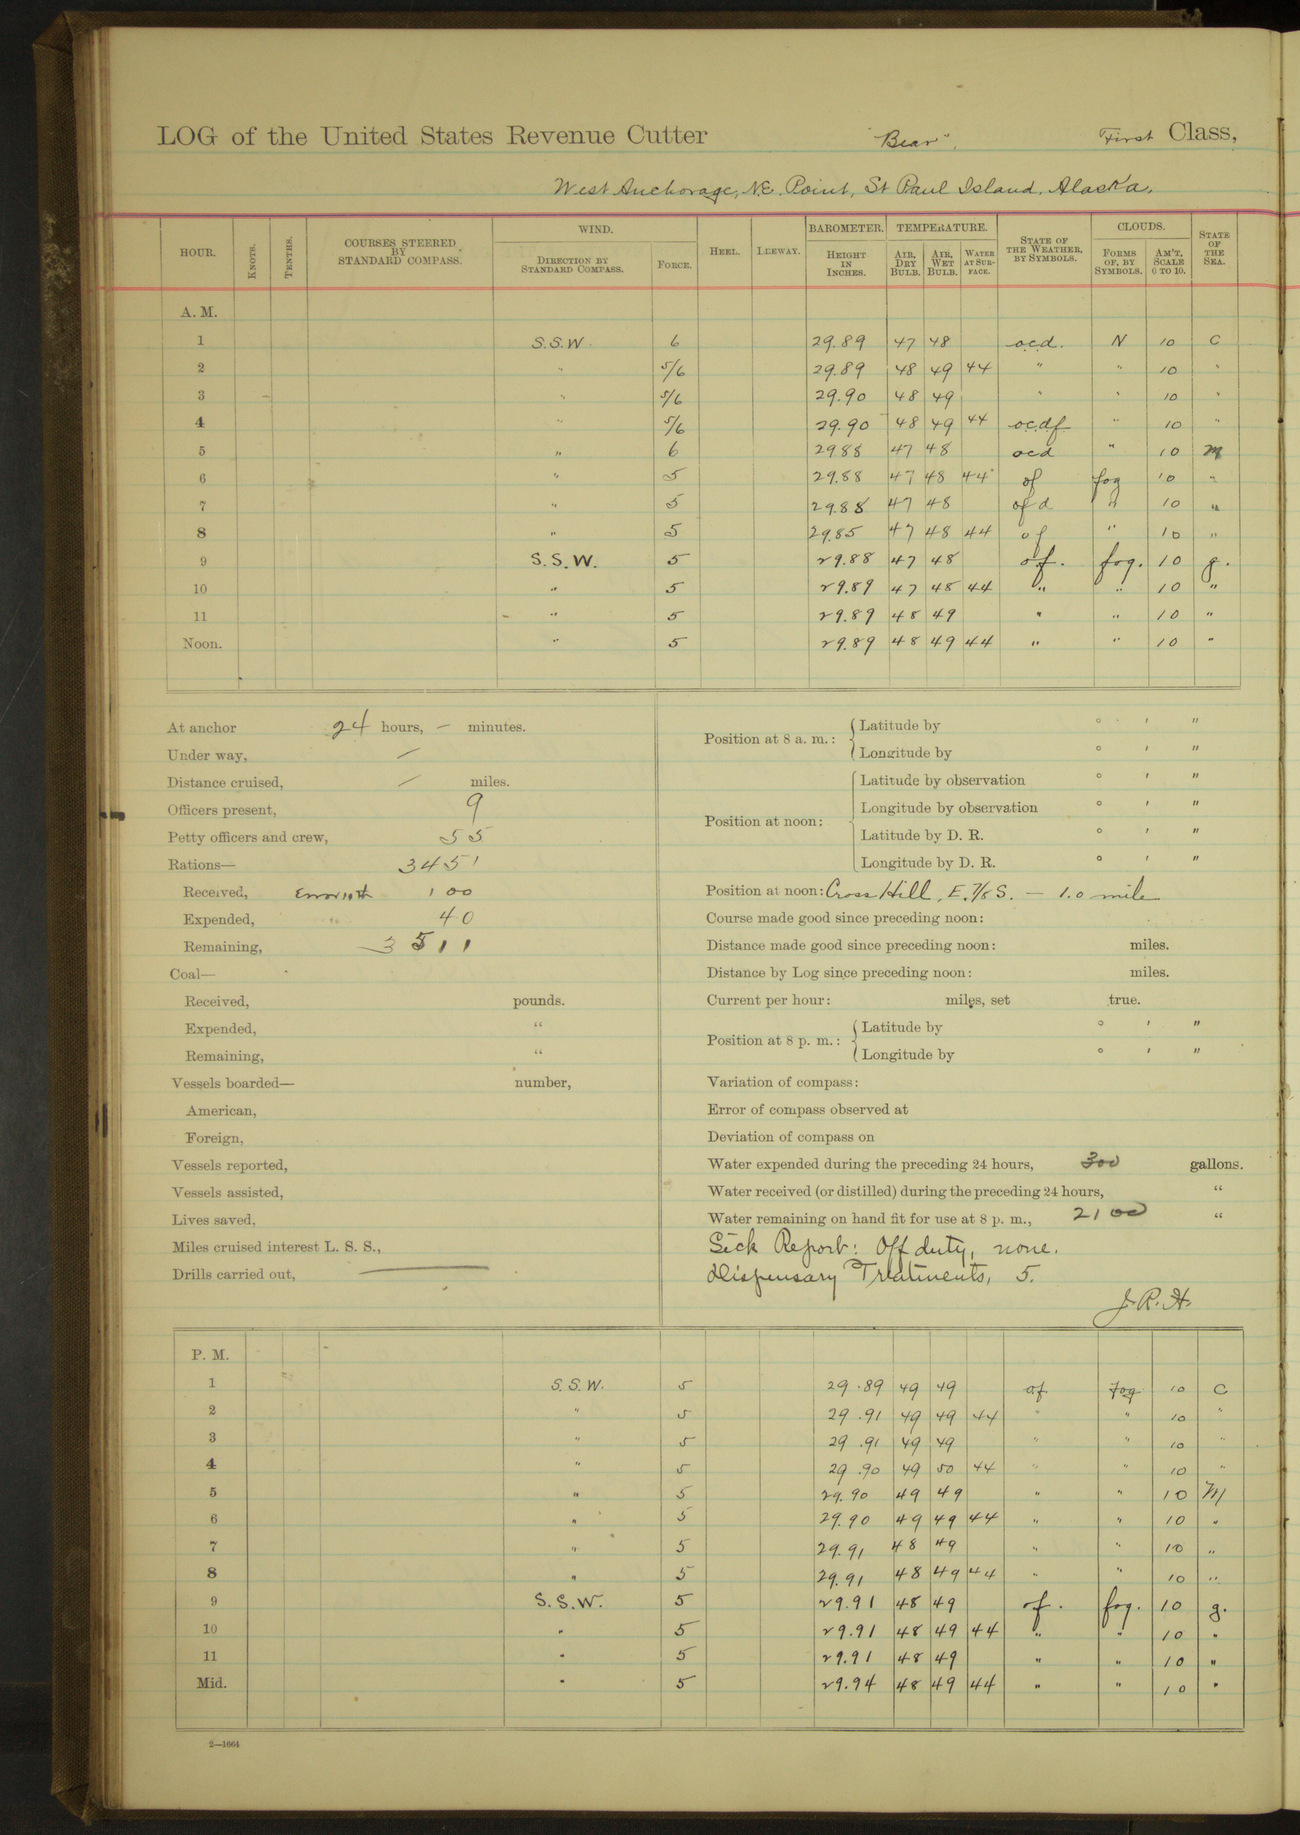 LOG of the United States Revenue Cutter "Bear", First Class,
West Anchorage, N.E. Point, St Paul Island, Alaska.
HOUR. KNOTS. TENTHS. COURSES STEERED BY STANDARD COMPASS. WIND. DIRECTION BY STANDARD COMPASS. FORCE. HEEL. LEEWAY. BAROMETER. HEIGHT IN INCHES. TEMPERATURE. AIR, DRY BULB. AIR, WET BULB. WATER AT SURFACE. STATE OF THE WEATHER, BY SYMBOLS. CLOUDS. FORMS OF, BY SYMBOLS. AM'T, SCALE 0 TO 10. STATE OF THE SEA.
A. M.
1 S.S.W. 6 29.89 47 48 ocd. N 10 C
2 " 5/6 29.89 48 49 44 " " 10 "
3 " 5/6 29.90 48 49 " " 10 "
4 " 5/6 29.90 48 49 44 ocdf " 10 "
5 " 6 2988 47 48 ocd " 10 M
6 " 5 29.88 47 48 44 of fog 10 "
7 " 5 29.88 47 48 ofd " 10 "
8 " 5 29.85 47 48 44 of " 10 "
9 S.S.W. 5 29.88 47 48 of. fog. 10 g.
10 " 5 29.89 47 48 44 " " 10 "
11 " 5 29.89 48 49 " " 10 "
Noon. " 5 29.89 48 49 44 " " 10 "
At anchor 24 hours, — minutes.
Under way, —
Distance cruised, — miles.
Officers present, 9
Petty officers and crew, 55
Rations— 3451
Received, Error 10th 100
Expended, 40
Remaining, 3511
Coal—
Received, pounds.
Expended, "
Remaining, "
Vessels boarded— number,
American,
Foreign,
Vessels reported,
Vessels assisted,
Lives saved,
Miles cruised interest L. S. S.,
Drills carried out, ———
Position at 8 a. m.: Latitude by ° ' "
Longitude by ° ' "
Position at noon: Latitude by observation ° ' "
Longitude by observation ° ' "
Latitude by D. R. ° ' "
Longitude by D. R. ° ' "
Position at noon: Cross Hill, E. 7/8 S. — 1.0 mile
Course made good since preceding noon:
Distance made good since preceding noon: miles.
Distance by Log since preceding noon: miles.
Current per hour: miles, set true.
Position at 8 p. m.: Latitude by ° ' "
Longitude by ° ' "
Variation of compass:
Error of compass observed at
Deviation of compass on
Water expended during the preceding 24 hours, 300 gallons.
Water received (or distilled) during the preceding 24 hours, "
Water remaining on hand fit for use at 8 p. m., 2100 "
Sick Report: Off duty, none.
Dispensary Treatments, 5.
J.R.H.
P. M.
1 S.S.W. 5 29.89 49 49 of Fog 10 C
2 " 5 29.91 49 49 44 " " 10 "
3 " 5 29.91 49 49 " " 10 "
4 " 5 29.90 49 50 44 " " 10 "
5 " 5 29.90 49 49 " " 10 M
6 " 5 29.90 49 49 44 " " 10 "
7 " 5 29.91 48 49 " " 10 "
8 " 5 29.91 48 49 44 " " 10 "
9 S.S.W. 5 29.91 48 49 of. fog. 10 g.
10 " 5 29.91 48 49 44 " " 10 "
11 " 5 29.91 48 49 " " 10 "
Mid. " 5 29.94 48 49 44 " " 10 "
2—1664